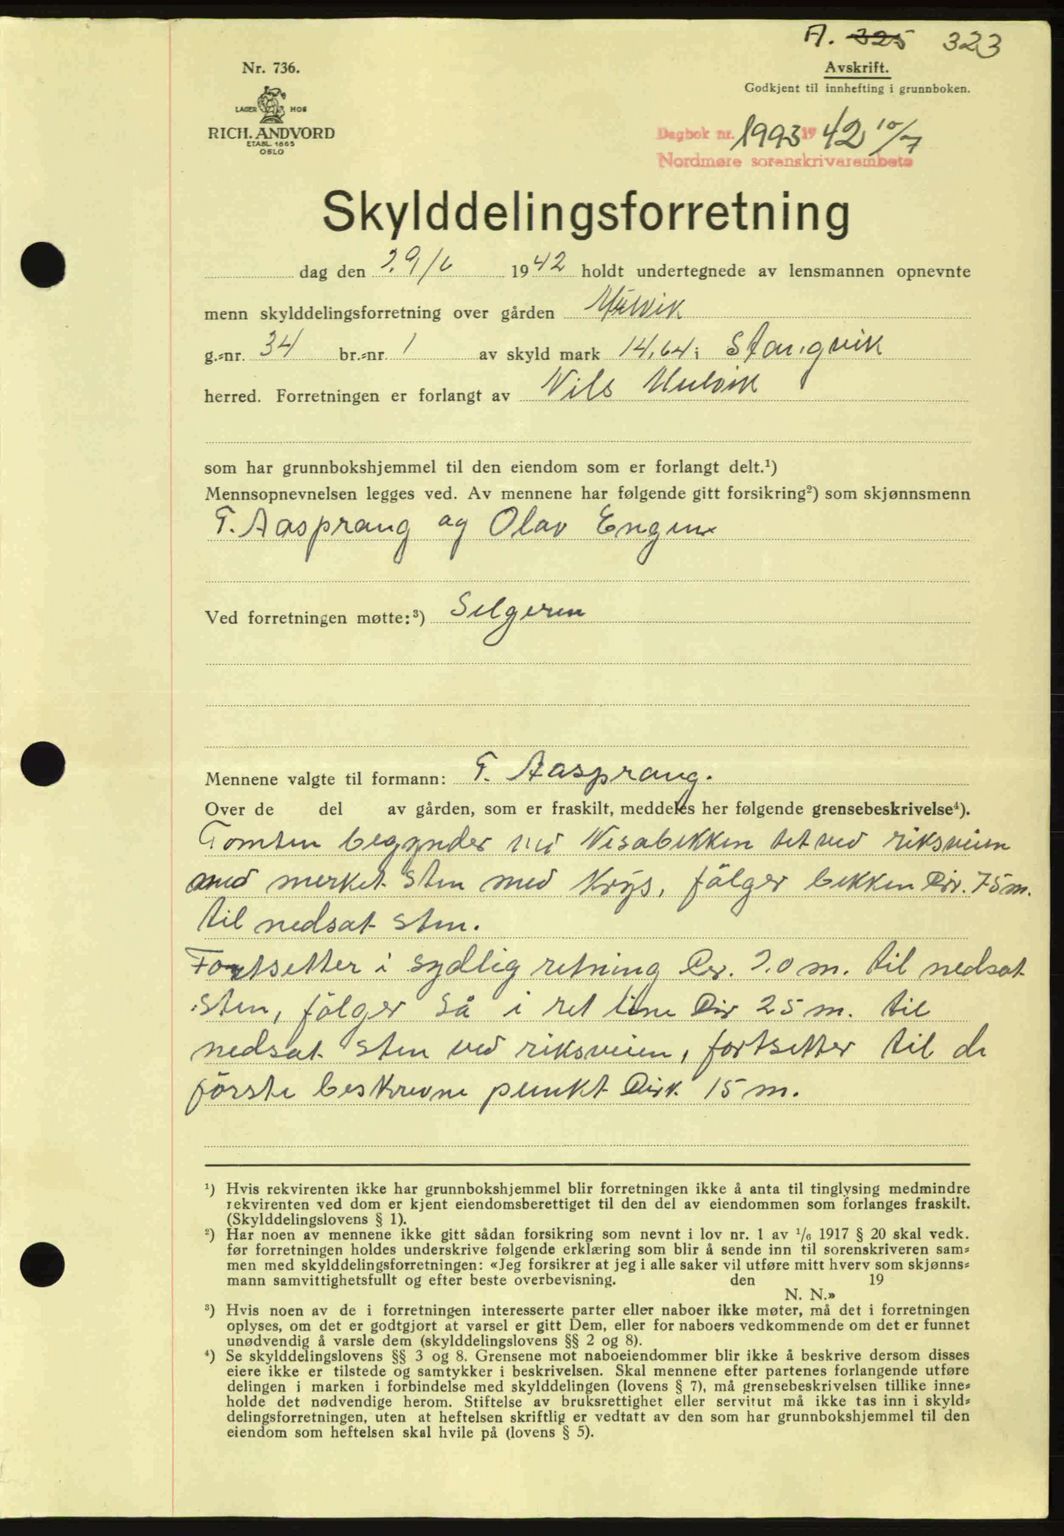 A. 325 323
Nr. 736.
Avskrift.
Godkjent til innhefting i grunnboken.
LAGER HOS
RICH. ANDVORD
ETABL. 1865
OSLO
Dagbok nr. 1993 1942 10/7
Nordmøre sorenskriverembete
Skylddelingsforretning
dag den 29/6 1942 holdt undertegnede av lensmannen opnevnte
menn skylddelingsforretning over gården Mulvik
g.-nr. 34 br.-nr. 1 av skyld mark 14,64 i Stangvik
herred. Forretningen er forlangt av Nils Mulvik
som har grunnbokshjemmel til den eiendom som er forlangt delt.¹)
Mennsopnevnelsen legges ved. Av mennene har følgende gitt forsikring²) som skjønnsmenn
T. Aasprang og Olav Engen
Ved forretningen møtte:³) Selgeren
Mennene valgte til formann: T. Aasprang.
Over de del av gården, som er fraskilt, meddeles her følgende grensebeskrivelse⁴).
Tomten begynder ved Nesabekken tet ved riksveien
med merket sten med Krys, følger bekken Cir. 75 m.
til nedsat sten.
Fortsetter i sydlig retning Cir. 20 m. til nedsat
sten, følger så i ret line Cir 25 m. til
nedsat sten ved riksveien, fortsetter til de
første beskrevne punkt Cirk. 15 m.
¹) Hvis rekvirenten ikke har grunnbokshjemmel blir forretningen ikke å anta til tinglysing medmindre
rekvirenten ved dom er kjent eiendomsberettiget til den del av eiendommen som forlanges fraskilt.
(Skylddelingslovens § 1).
²) Har noen av mennene ikke gitt sådan forsikring som nevnt i lov nr. 1 av 1/6 1917 § 20 skal vedk.
før forretningen holdes underskrive følgende erklæring som blir å sende inn til sorenskriveren sam-
men med skylddelingsforretningen: «Jeg forsikrer at jeg i alle saker vil utføre mitt hverv som skjønns-
mann samvittighetsfullt og efter beste overbevisning. den 19
N. N.»
³) Hvis noen av de i forretningen interesserte parter eller naboer ikke møter, må det i forretningen
oplyses, om det er godtgjort at varsel er gitt Dem, eller for naboers vedkommende om det er funnet
unødvendig å varsle dem (skylddelingslovens §§ 2 og 8).
⁴) Se skylddelingslovens §§ 3 og 8. Grensene mot naboeiendommer blir ikke å beskrive dersom disses
eiere ikke er tilstede og samtykker i beskrivelsen. Skal mennene efter partenes forlangende utføre
delingen i marken i forbindelse med skylddelingen (lovens § 7), må grensebeskrivelsen tillike inne-
holde det nødvendige herom. Stiftelse av bruksrettighet eller servitut må ikke tas inn i skyld-
delingsforretningen, uten at heftelsen skriftlig er vedtatt av den som har grunnbokshjemmel til den
eiendom som heftelsen skal hvile på (lovens § 5).